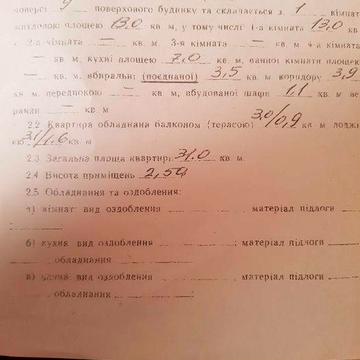 поверсі 9 поверхового будинку та складається з 1 кімнат
житловою площею 13,0 кв м, у тому числі 1-а кімната 13,0 кв
2-а кімната — кв м, 3-я кімната — кв м 4-а кімната
— кв м, кухні площею 7,0 кв м, ванної кімнати площею
— кв м, вбиральні (поєднаної) 3,5 кв м коридору 3,9
кв м. передпокою — кв м, вбудованої шафи 1,1 кв м ве
ранди — кв м
2.2 Квартира обладнана балконом (терасою) 3,0/0,9 кв м лоджі
єю 3,1/1,6 кв м
2.3 Загальна площа квартири 31,0 кв м
2.4 Висота приміщень 2,50
2.5 Обладнання та оздоблення:
а) кімнат вид оздоблення ; матеріал підлоги
б) кухня вид оздоблення ; матеріал підлоги
, обладнання
в) ванна вид оздоблення ; матеріал підлоги
, обладнання